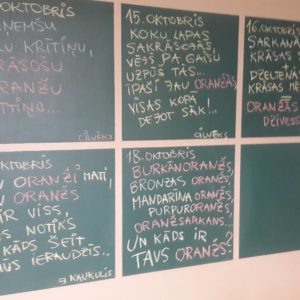 OKTOBRIS
ŅEMŠU
U KRĪTIŅU,
RĀSOŠU
RANŽU
TIŅU...
CILVĒKS
15. OKTOBRIS
KOKU LAPAS
SAKRĀSOJĀS,
VĒJŠ PA GAISU
UZPŪŠ TĀS...
ĪPAŠI JAU ORANŽĀS,
VISAS KOPĀ
DEGOT SĀK!...
CILVĒKS
16. OKTOBRIS
SARKANĀ
KRĀSA
DZELTENĀ
KRĀSAS
ORANŽĀS
DZĪVES
OKTOBRIS
ORANŽI MATI,
ORANŽS
IR VISS,
NOTIKS
KĀDS ŠEIT
IERAUDZĪS...
J. KAUKULIS
18. OKTOBRIS
BURKĀNORANŽS,
BRONZAS ORANŽS,
MANDARĪNA ORANŽS,
PURPURORANŽS,
ORANŽSARKANS...
UN KĀDS IR
TAVS ORANŽS?